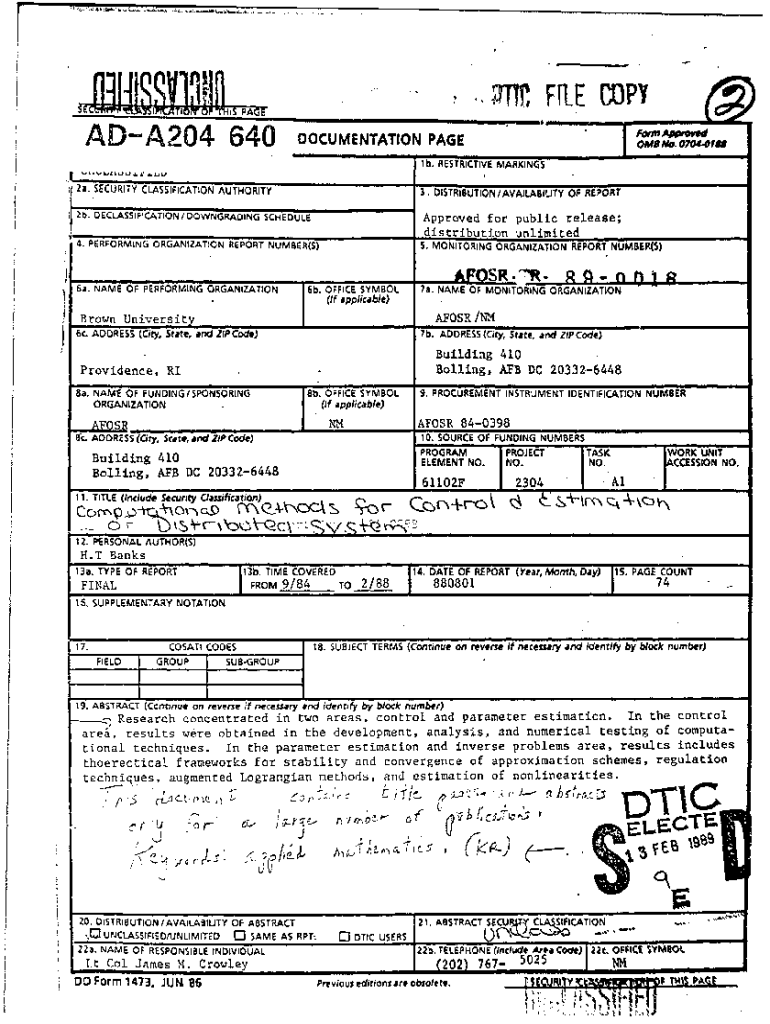 UNCLASSIFIED
SECURITY CLASSIFICATION OF THIS PAGE
DTIC FILE COPY
2
AD-A204 640
DOCUMENTATION PAGE
Form Approved
OMB No. 0704-0188
1b. RESTRICTIVE MARKINGS
2a. SECURITY CLASSIFICATION AUTHORITY
3. DISTRIBUTION/AVAILABILITY OF REPORT
Approved for public release;
distribution unlimited
2b. DECLASSIFICATION/DOWNGRADING SCHEDULE
4. PERFORMING ORGANIZATION REPORT NUMBER(S)
5. MONITORING ORGANIZATION REPORT NUMBER(S)
AFOSR-TR- 89-0018
6a. NAME OF PERFORMING ORGANIZATION
Brown University
6b. OFFICE SYMBOL
(If applicable)
7a. NAME OF MONITORING ORGANIZATION
AFOSR/NM
6c. ADDRESS (City, State, and ZIP Code)
Providence, RI
7b. ADDRESS (City, State, and ZIP Code)
Building 410
Bolling, AFB DC 20332-6448
8a. NAME OF FUNDING/SPONSORING
ORGANIZATION
AFOSR
8b. OFFICE SYMBOL
(If applicable)
NM
9. PROCUREMENT INSTRUMENT IDENTIFICATION NUMBER
AFOSR 84-0398
8c. ADDRESS (City, State, and ZIP Code)
Building 410
Bolling, AFB DC 20332-6448
10. SOURCE OF FUNDING NUMBERS
PROGRAM
ELEMENT NO.
61102F
PROJECT
NO.
2304
TASK
NO.
A1
WORK UNIT
ACCESSION NO.
11. TITLE (Include Security Classification)
Computational Methods for Control & Estimation
of Distributed Systems
12. PERSONAL AUTHOR(S)
H.T Banks
13a. TYPE OF REPORT
FINAL
13b. TIME COVERED
FROM 9/84 TO 2/88
14. DATE OF REPORT (Year, Month, Day)
880801
15. PAGE COUNT
74
16. SUPPLEMENTARY NOTATION
17. COSATI CODES
FIELD GROUP SUB-GROUP
18. SUBJECT TERMS (Continue on reverse if necessary and identify by block number)
19. ABSTRACT (Continue on reverse if necessary and identify by block number)
Research concentrated in two areas, control and parameter estimation. In the control
area, results were obtained in the development, analysis, and numerical testing of computa-
tional techniques. In the parameter estimation and inverse problems area, results includes
thoerectical frameworks for stability and convergence of approximation schemes, regulation
techniques, augmented Lograngian methods, and estimation of nonlinearities.
This document contains title and abstracts
only for a large number of publications.
Keywords: applied mathematics. (KR)
DTIC
ELECTE
13 FEB 1989
S D
E
20. DISTRIBUTION/AVAILABILITY OF ABSTRACT
UNCLASSIFIED/UNLIMITED SAME AS RPT. DTIC USERS
21. ABSTRACT SECURITY CLASSIFICATION
22a. NAME OF RESPONSIBLE INDIVIDUAL
Lt Col James M. Crowley
22b. TELEPHONE (Include Area Code)
(202) 767- 5025
22c. OFFICE SYMBOL
NM
DD Form 1473, JUN 86
Previous editions are obsolete.
SECURITY CLASSIFICATION OF THIS PAGE
UNCLASSIFIED